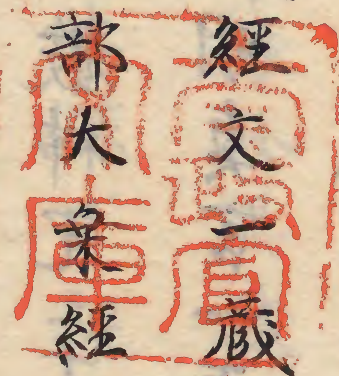 經文一藏
部大衆經